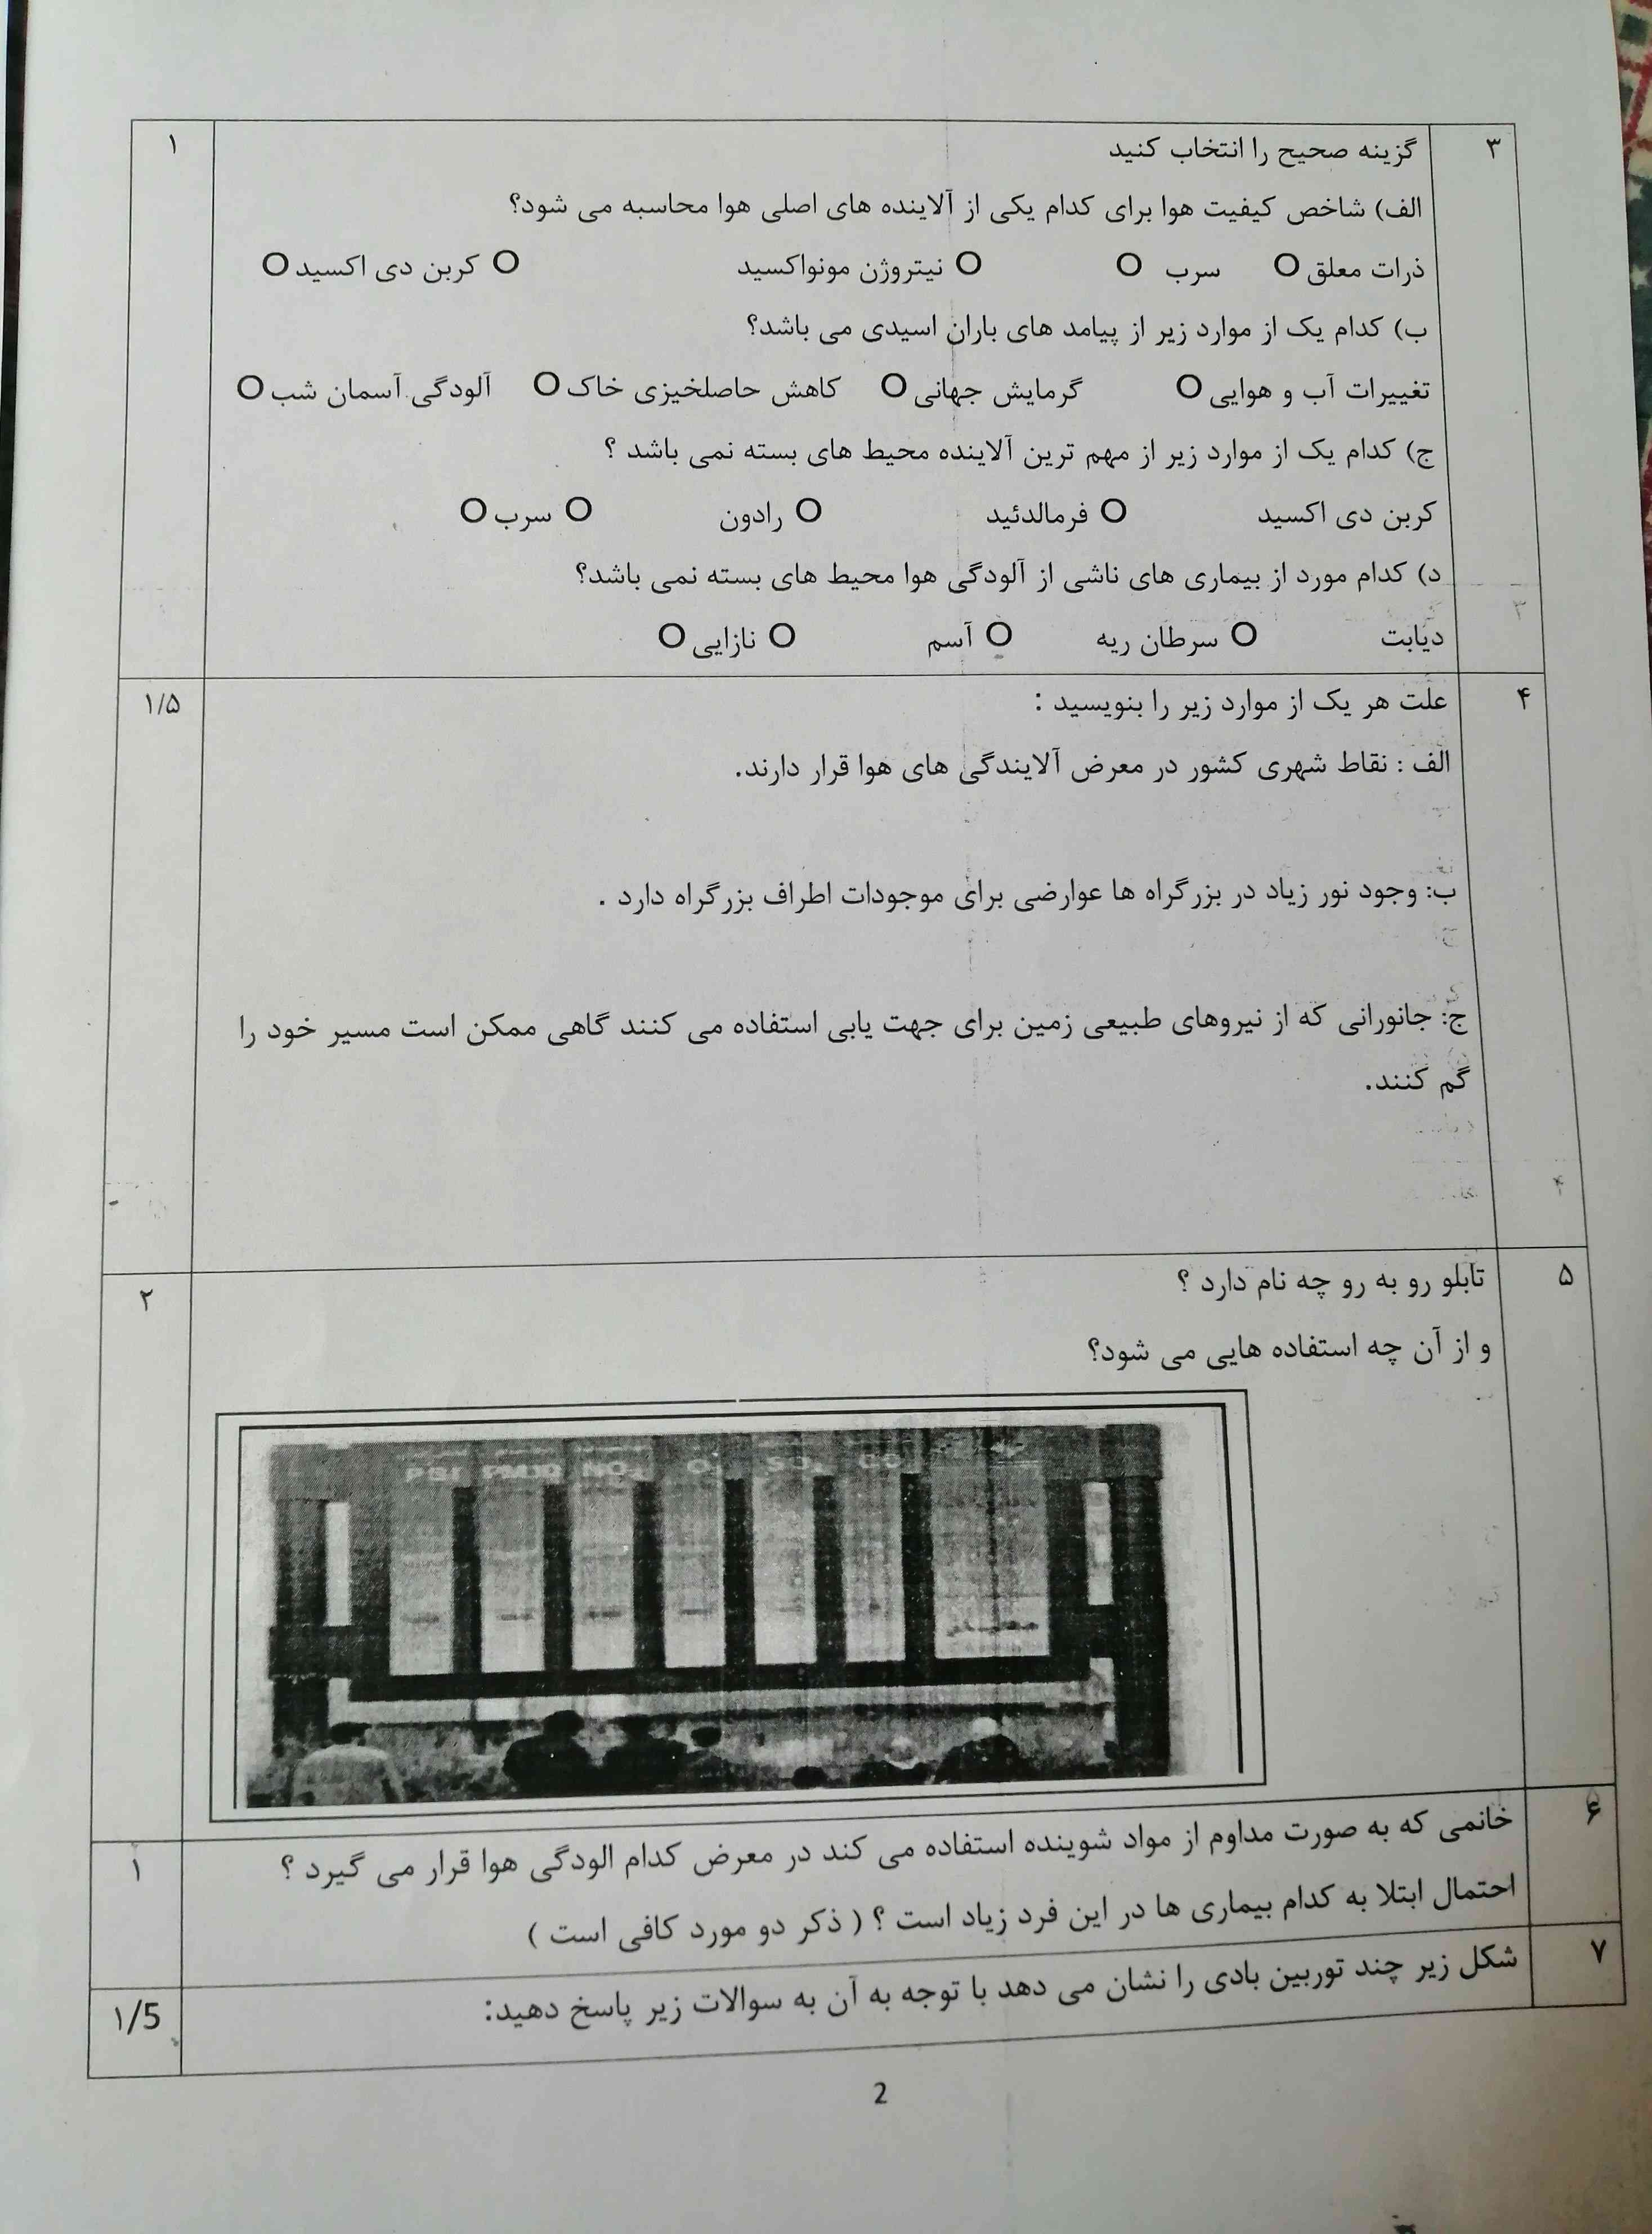 ۳
گزینه صحیح را انتخاب کنید
۱
الف) شاخص کیفیت هوا برای کدام یکی از آلاینده های اصلی هوا محاسبه می شود؟
ذرات معلق O سرب O O نیتروژن مونواکسید O کربن دی اکسید O
ب) کدام یک از موارد زیر از پیامد های باران اسیدی می باشد؟
تغییرات آب و هوایی O گرمایش جهانی O کاهش حاصلخیزی خاک O آلودگی آسمان شب O
ج) کدام یک از موارد زیر از مهم ترین آلاینده محیط های بسته نمی باشد ؟
کربن دی اکسید O فرمالدئید O رادون O سرب O
د) کدام مورد از بیماری های ناشی از آلودگی هوا محیط های بسته نمی باشد؟
دیابت O سرطان ریه O آسم O نازایی O
۴
علت هر یک از موارد زیر را بنویسید :
۱/۵
الف : نقاط شهری کشور در معرض آلایندگی های هوا قرار دارند.
ب: وجود نور زیاد در بزرگراه ها عوارضی برای موجودات اطراف بزرگراه دارد .
ج: جانورانی که از نیروهای طبیعی زمین برای جهت یابی استفاده می کنند گاهی ممکن است مسیر خود را
گم کنند.
۵
تابلو رو به رو چه نام دارد ؟
۲
و از آن چه استفاده هایی می شود؟
PSI PM10 NO₂
۶
خانمی که به صورت مداوم از مواد شوینده استفاده می کند در معرض کدام الودگی هوا قرار می گیرد ؟
۱
احتمال ابتلا به کدام بیماری ها در این فرد زیاد است ؟ ( ذکر دو مورد کافی است )
۷
شکل زیر چند توربین بادی را نشان می دهد با توجه به آن به سوالات زیر پاسخ دهید:
۱/5
2